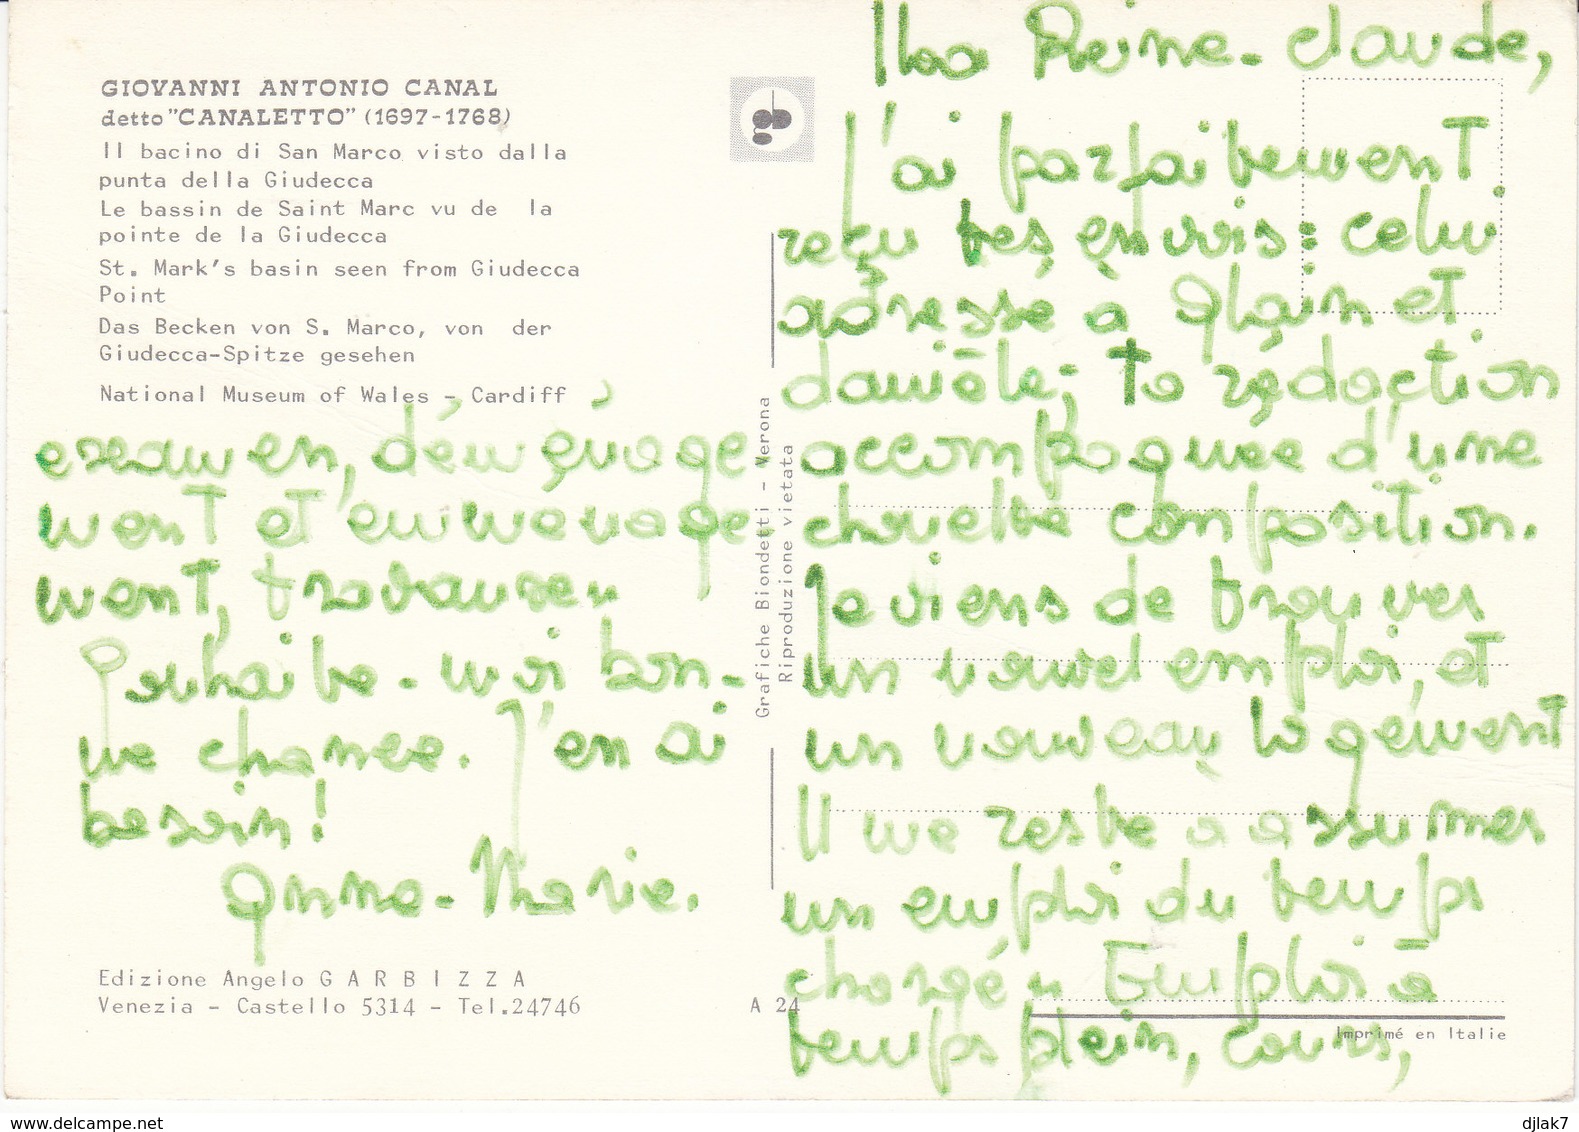 GIOVANNI ANTONIO CANAL
detto "CANALETTO" (1697-1768)
Il bacino di San Marco visto dalla
punta della Giudecca
Le bassin de Saint Marc vu de la
pointe de la Giudecca
St. Mark's basin seen from Giudecca
Point
Das Becken von S. Marco, von der
Giudecca-Spitze gesehen
National Museum of Wales - Cardiff
gb
Grafiche Biondetti - Verona
Riproduzione vietata
Ma Reine-Claude,
J'ai parfaitement
reçu tes envois : celui
adressé à Ghain et
danièle ; ta rédaction
accompagnée d'une
chouette composition.
Je viens de trouver
un nouvel emploi, et
un nouveau logement
Il me reste à assumer
un emploi du temps
chargé " Emploi à
temps plein, cours,
examen, déménage
ment et emménage
ment, travaux "
Souhaite-moi bon-
ne chance. J'en ai
besoin !
Anne-Marie.
Edizione Angelo GARBIZZA
Venezia - Castello 5314 - Tel.24746
A 24
Imprimé en Italie
www.delcampe.net
djlak7